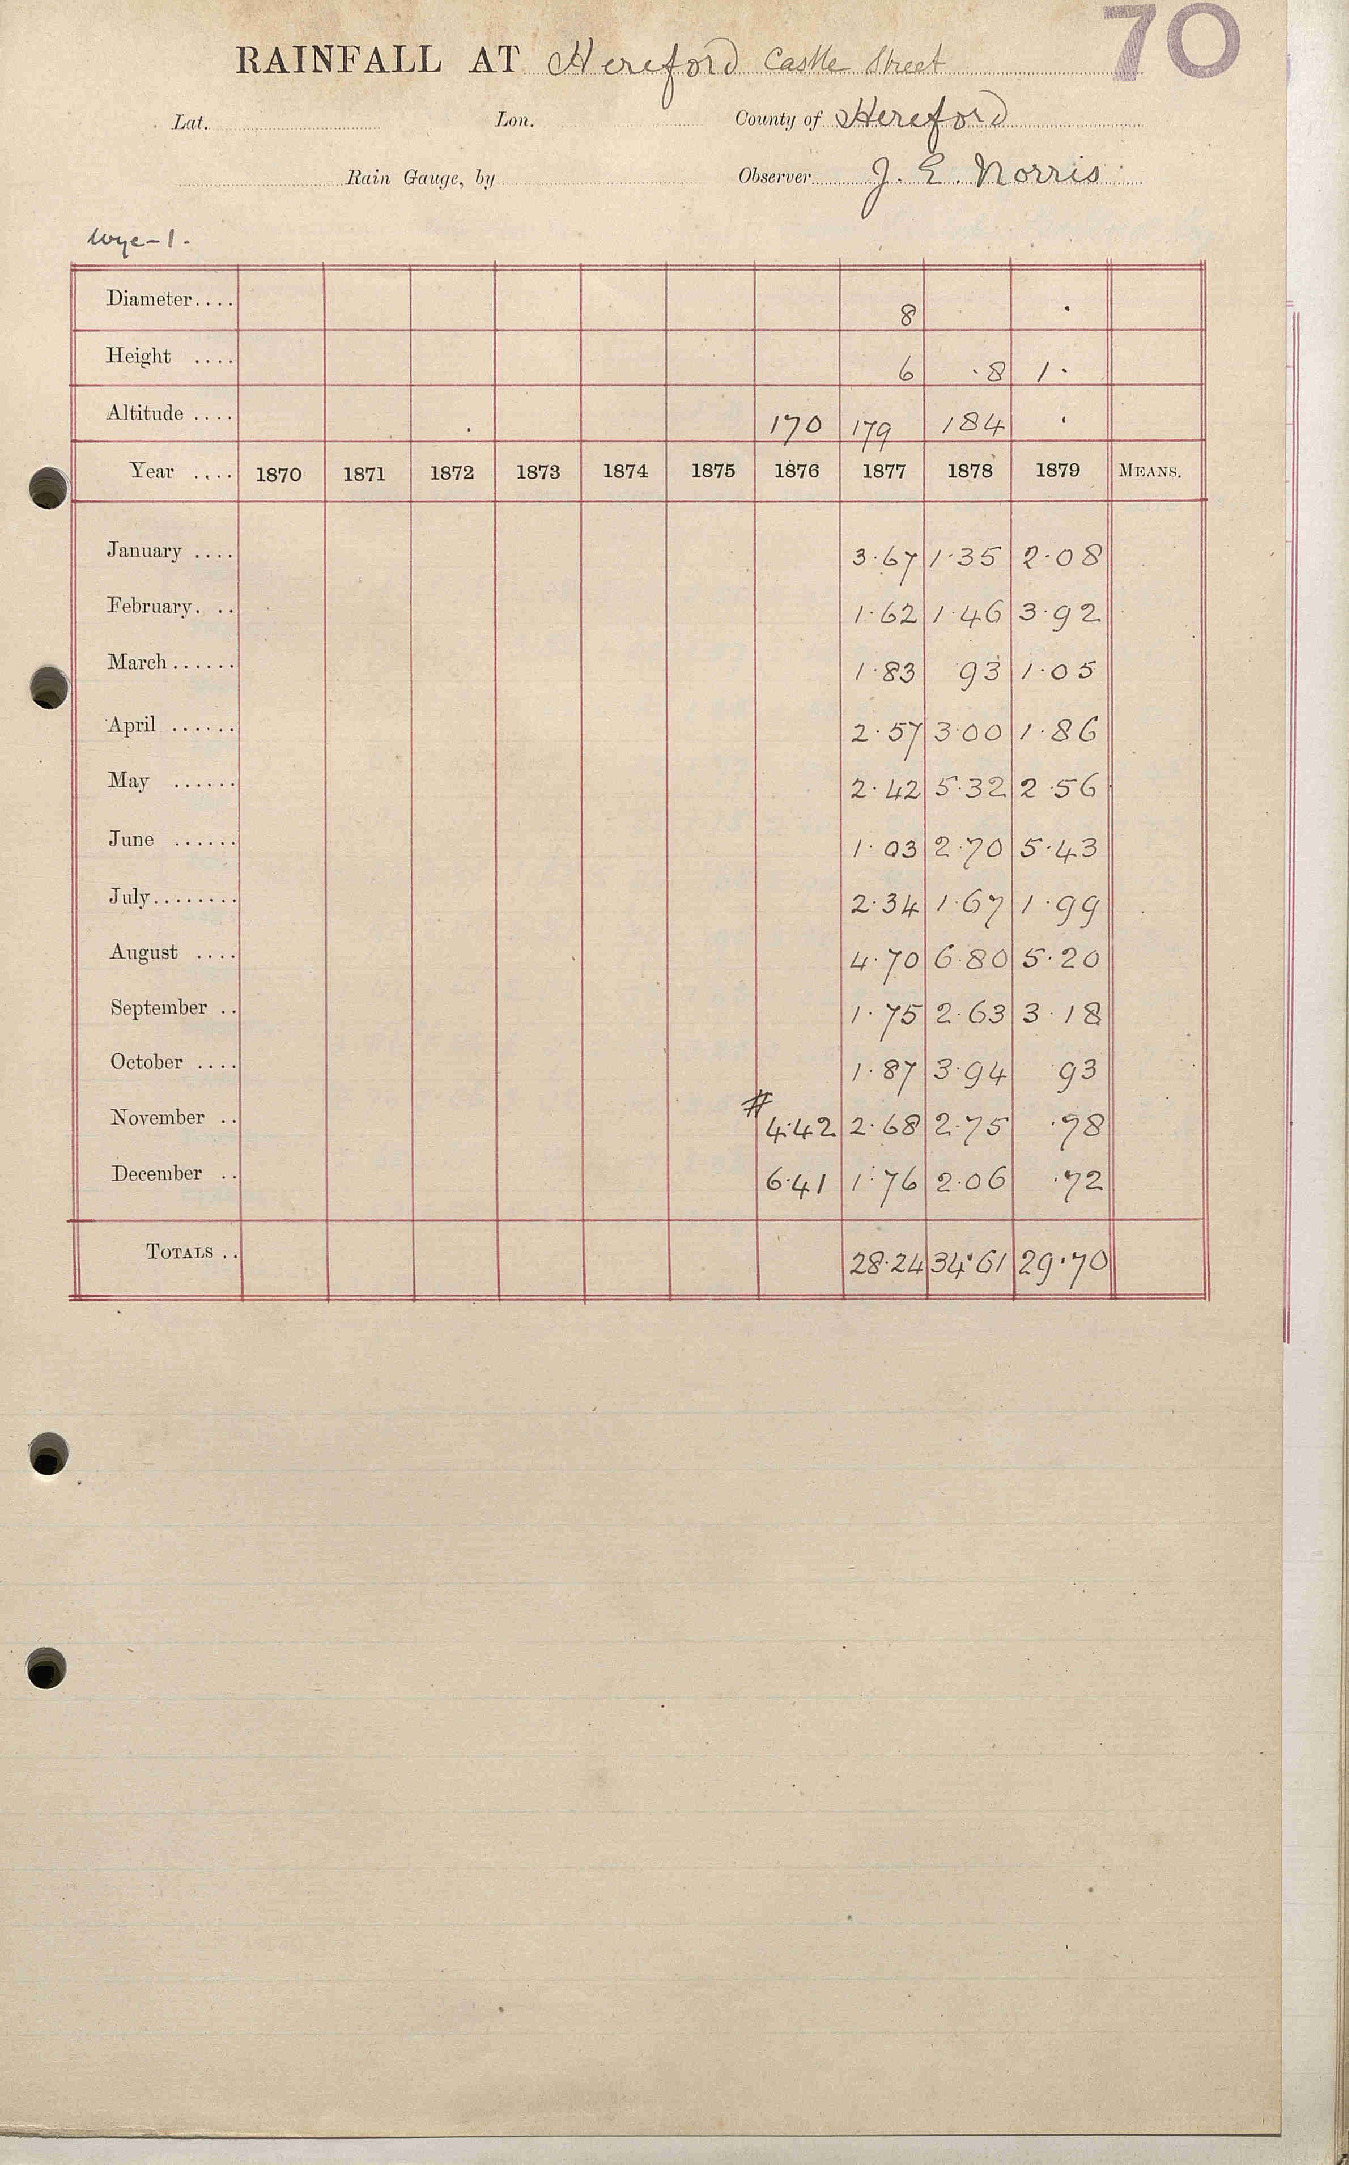 70
RAINFALL AT Hereford Castle Street
Lat. Lon. County of Hereford
Rain Gauge, by Observer J. E. Norris
Wye-1.
Diameter.... 8 .
Height .... 6 .8 1.
Altitude .... 170 179 184 .
Year .... 1870 1871 1872 1873 1874 1875 1876 1877 1878 1879 MEANS.
January .... 3.67 1.35 2.08
February. .. 1.62 1.46 3.92
March...... 1.83 93 1.05
April ...... 2.57 3.00 1.86
May ...... 2.42 5.32 2.56
June ...... 1.03 2.70 5.43
July........ 2.34 1.67 1.99
August .... 4.70 6.80 5.20
September .. 1.75 2.63 3.18
October .... 1.87 3.94 93
November .. # 4.42 2.68 2.75 .78
December .. 6.41 1.76 2.06 .72
TOTALS .. 28.24 34.61 29.70